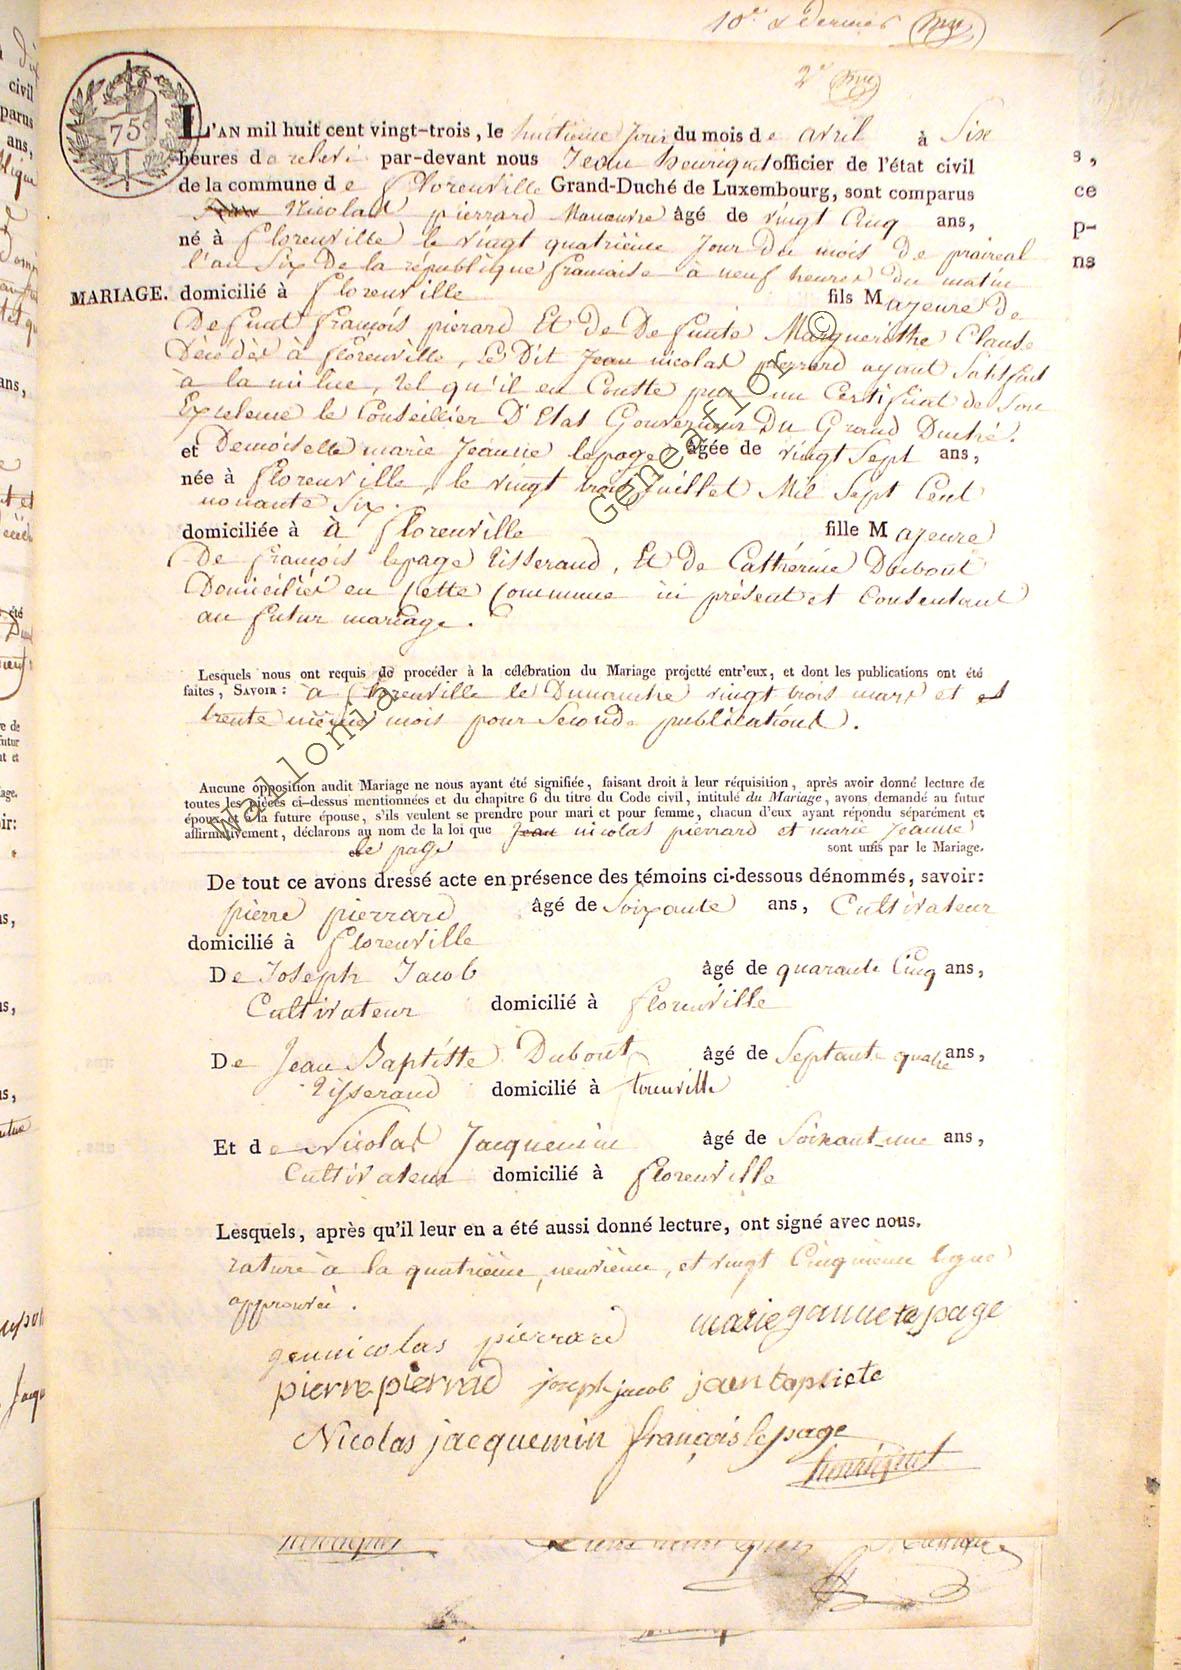 10e & dernier
2e
75
L'AN mil huit cent vingt-trois, le huitieme jour du mois de avril à Six
heures de relevé par-devant nous Jean henriquet officier de l'état civil
de la commune de florenville Grand-Duché de Luxembourg, sont comparus
Jean Nicolas pierrard Manœuvre âgé de vingt Cinq ans,
né à florenville le vingt quatrième Jour Du mois De praireal
l'an Six De la république francaise à neuf heures du matin
MARIAGE. domicilié à florenville fils Majeure De
Defunt françois pierard Et De Defunte Marguerithe Claude
Décédés à florenville, le Dit Jean nicolas pierrard ayant Satisfait
à la milice, tel qu'il en Conste par un Certificat de Son
Excelence le Conseillier D'Etat Gouverneur Du Grand Duché.
et Demoiselle marie Jeanne lepage âgée de vingt Sept ans,
née à florenville, le vingt trois Juillet Mil Sept Cent
nonante Six.
domiciliée à à florenville fille Majeure
De françois lepage tisserand, Et De Cathérine Dubout
Domiciliés en cette Commune ici présent et Consentant
au futur mariage.
Lesquels nous ont requis de procéder à la célébration du Mariage projetté entr'eux, et dont les publications ont été
faites, SAVOIR: à florenville le Dimanche vingt trois mars et et
trente même mois pour Seconde publications.
Aucune opposition audit Mariage ne nous ayant été signifiée, faisant droit à leur réquisition, après avoir donné lecture de
toutes les pièces ci-dessus mentionnées et du chapitre 6 du titre du Code civil, intitulé du Mariage, avons demandé au futur
époux et à la future épouse, s'ils veulent se prendre pour mari et pour femme, chacun d'eux ayant répondu séparément et
affirmativement, déclarons au nom de la loi que Jean nicolas pierrard et marie Jeanne
le page sont unis par le Mariage.
De tout ce avons dressé acte en présence des témoins ci-dessous dénommés, savoir:
pierre pierrard âgé de Soixante ans, Cultivateur
domicilié à florenville
De Joseph Jacob âgé de quarante Cinq ans,
Cultivateur domicilié à florenville
De Jean Baptiste Dubout âgé de Septante quatre ans,
tisserand domicilié à
Et de Nicolas Jacquemin âgé de Soixant-une ans,
Cultivateur domicilié à florenville
Lesquels, après qu'il leur en a été aussi donné lecture, ont signé avec nous.
rature à la quatrième, neuvième, et vingt Cinquieme ligne
approuvée.
gennicolas pierrard marie ganne le page
pierre pierrard joseph jacob jaen bapticte
Nicolas jacquemin françois lepage
henriquet
Wallonia GeneaFlor ©